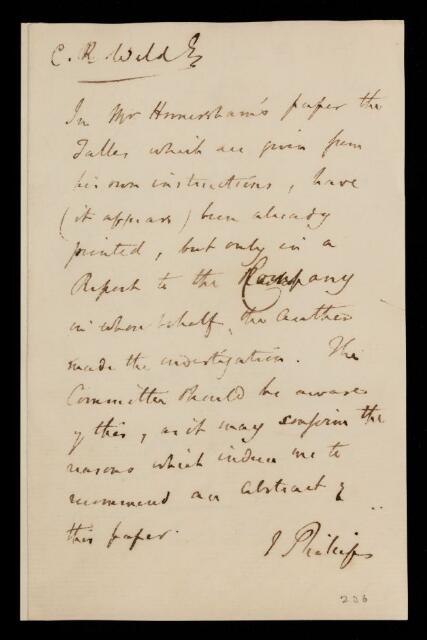 C. R. Weld Esq
In Mr Homersham's paper the
Tables which are given from
his own instructions, have
(it appears) been already
printed, but only in a
Report to the Company
in whose behalf the Author
made the investigation. The
Committee should be aware
of this, as it may confirm the
reasons which induce me to
recommend an abstract of
this paper.
J Phillips
236